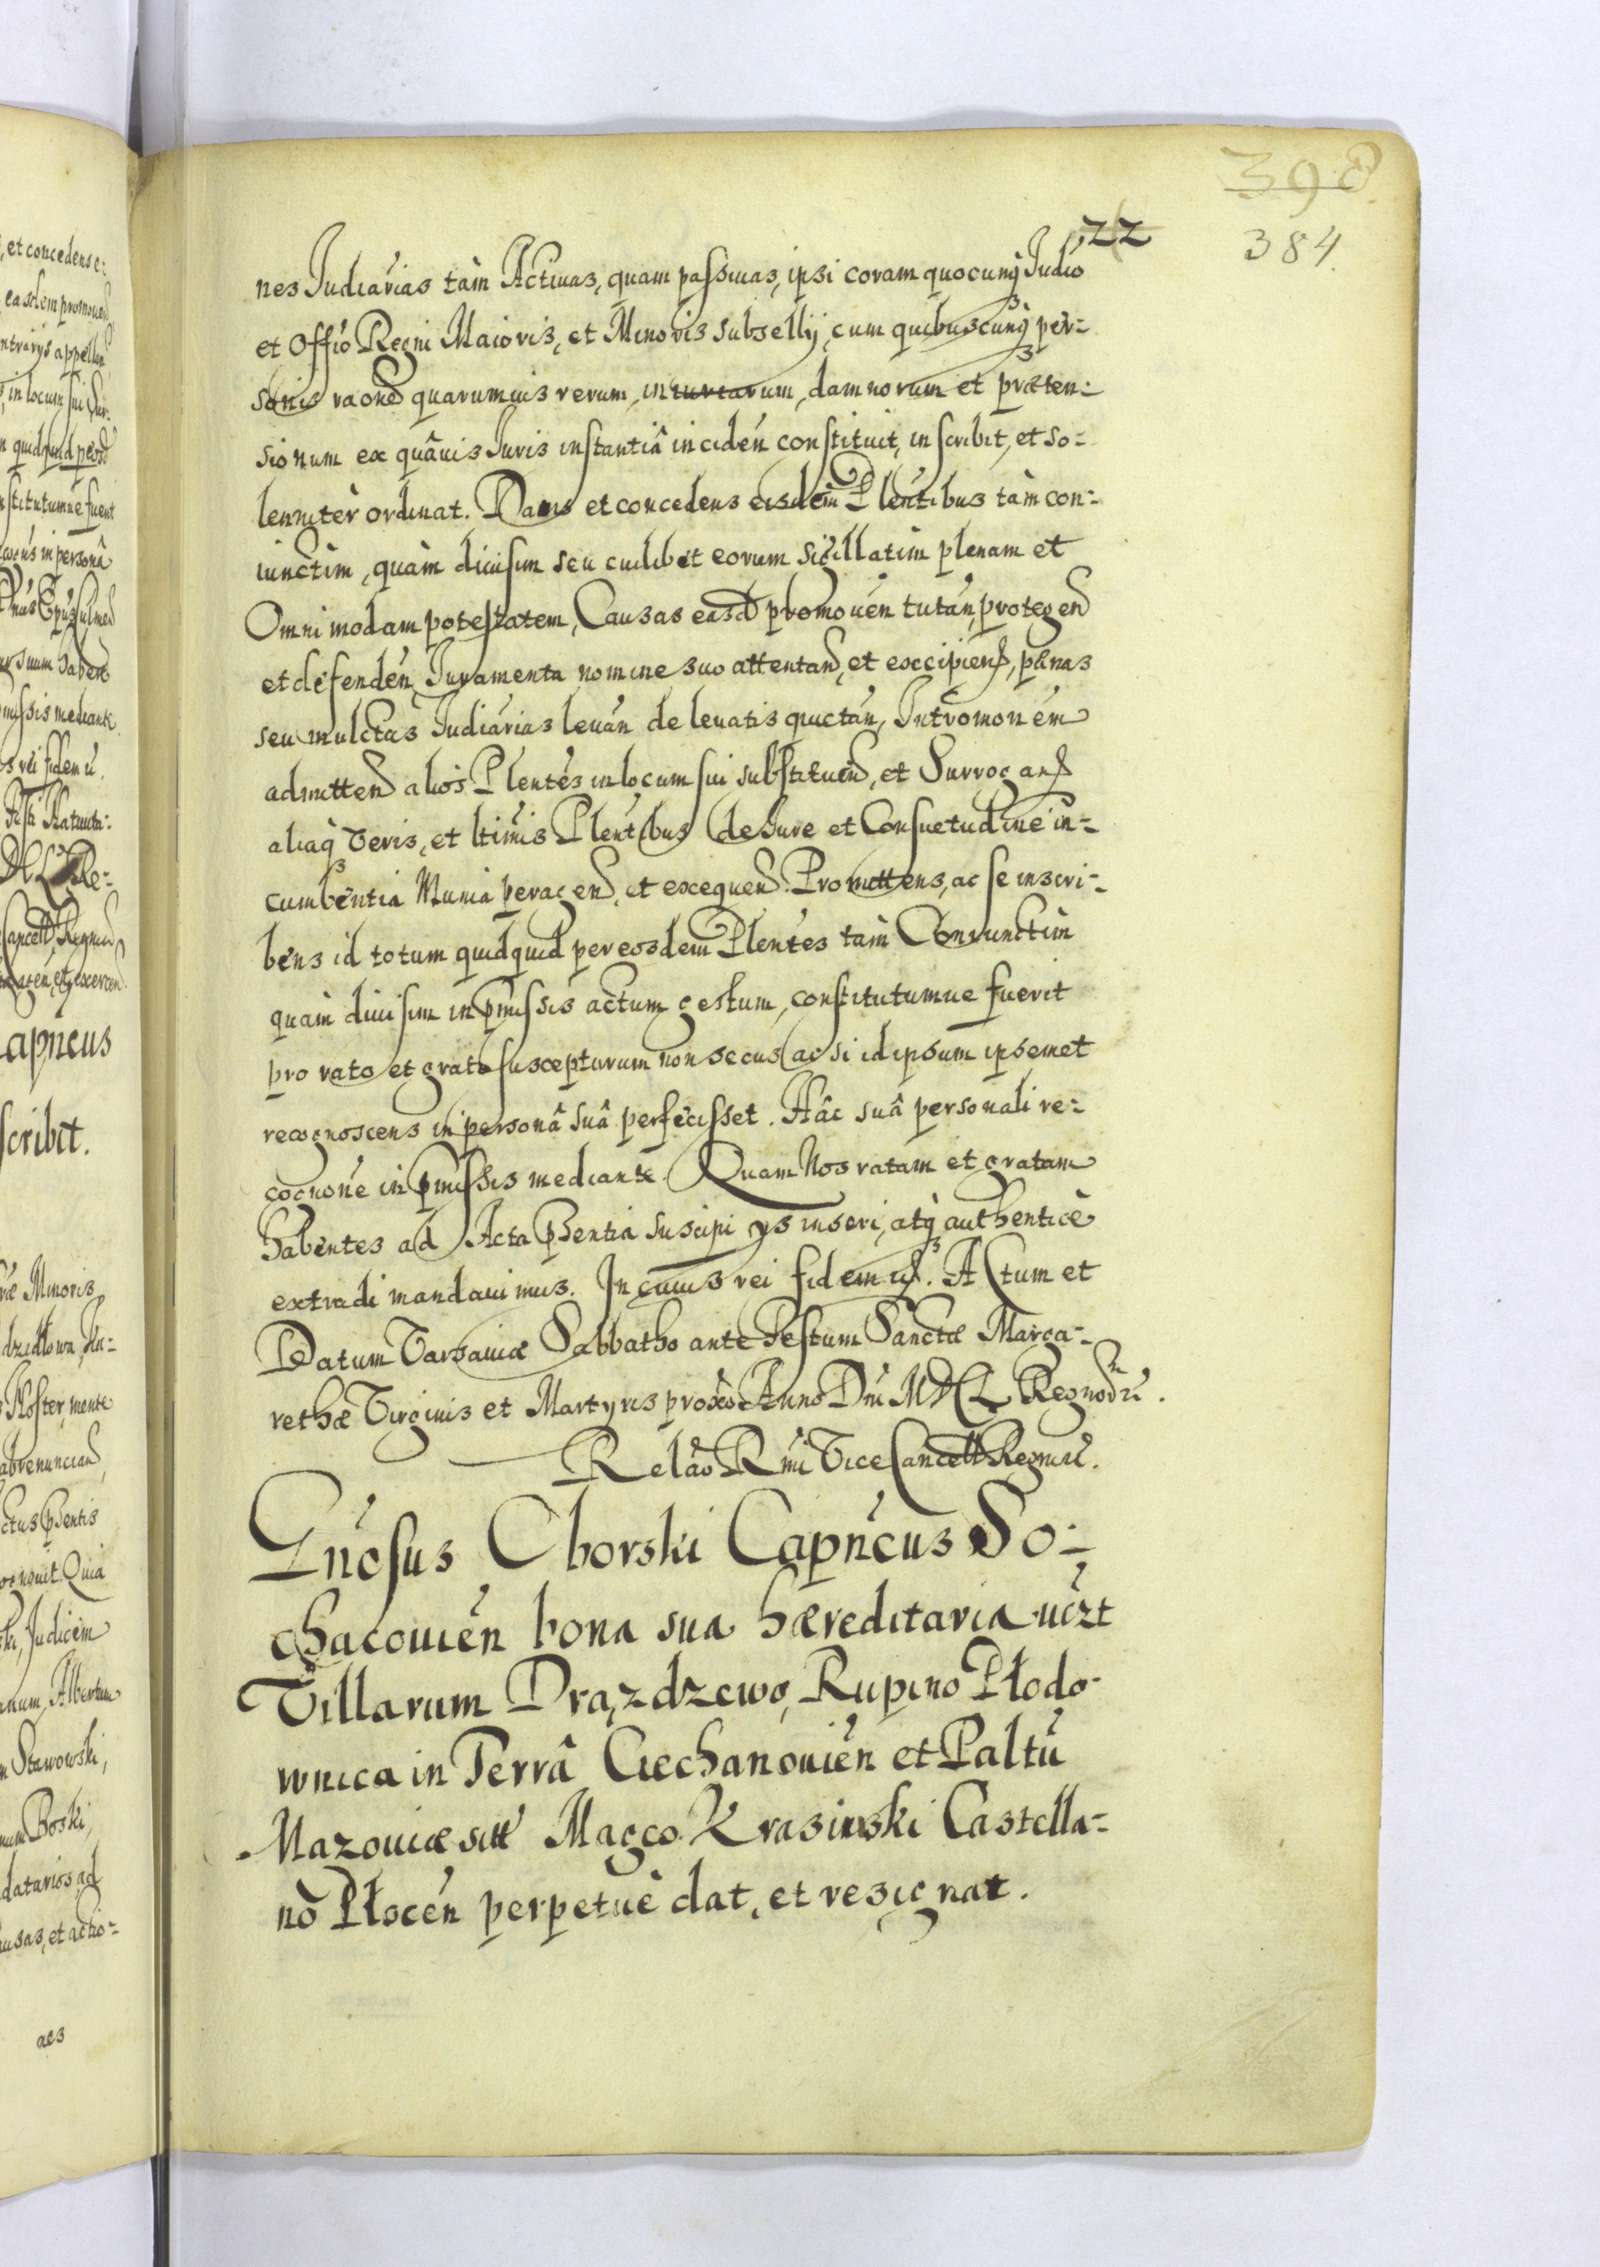 398
22
384.
nes Judiarias tàm Activas, quam passivas, ipsi coram quocunq Judio
et Offio Regni Maioris, et Minoris subsellij, cum quibuscunq per-
sonis raone quarumuis rerum, iniuriarum, damnorum et præten-
sionum ex quâuis Juris instantiâ inciden constituit, inscribit, et so-
lenniter ordinat. Dans et concedens eisdem Plentibus tàm con-
iunctim, quàm diuisim seu cuilibet eorum sigillatim plenam et
Omnimodam potestatem, Causas easd promouen tutan, protegend
et defenden, Juramenta nomine suo attentand, et excipiend, pænas
seu mulctas Judiarias leuan de leuatis quietan, Intromonem
admittend alios Plentes in locum sui substituend, et Surrogand
aliaq Veris, et ltimis Plentibus de Jure et Consuetudine in-
cumbentia Munia peragend, et exequend. Promittens, ac se inscri-
bens id totum quidquid per eosdem Plentes tàm Coniunctim
quàm diuisim in pmissis actum gestum, constitutumue fuerit
pro rato et grato suscepturum non secus ac si id ipsum ipsemet
recognoscens in personâ suâ perfecisset. Hâc suâ personali re-
cognone in pmissis mediante. Quam Nos ratam et gratam
habentes ad Acta psentia suscipi ys inseri, atq authenticè
extradi mandauimus. In cuius rei fidem &. Actum et
Datum Varsauiæ Sabbatho ante Festum Sanctæ Marga-
rethæ Virginis et Martyris proxo Anno Dni MDCL Regnor
Relao Rmi ViceCancell Regni &.
Gnesus Oborski Capneus So-
chacouien bona sua hæreditaria uizt
Villarum Drązdzewo, Rupino Płodo-
wnica in Terrâ Ciechanouien et Paltu
Mazouiæ sitt Magco Krasinski Castella-
no Płocen perpetuè dat, et resignat.